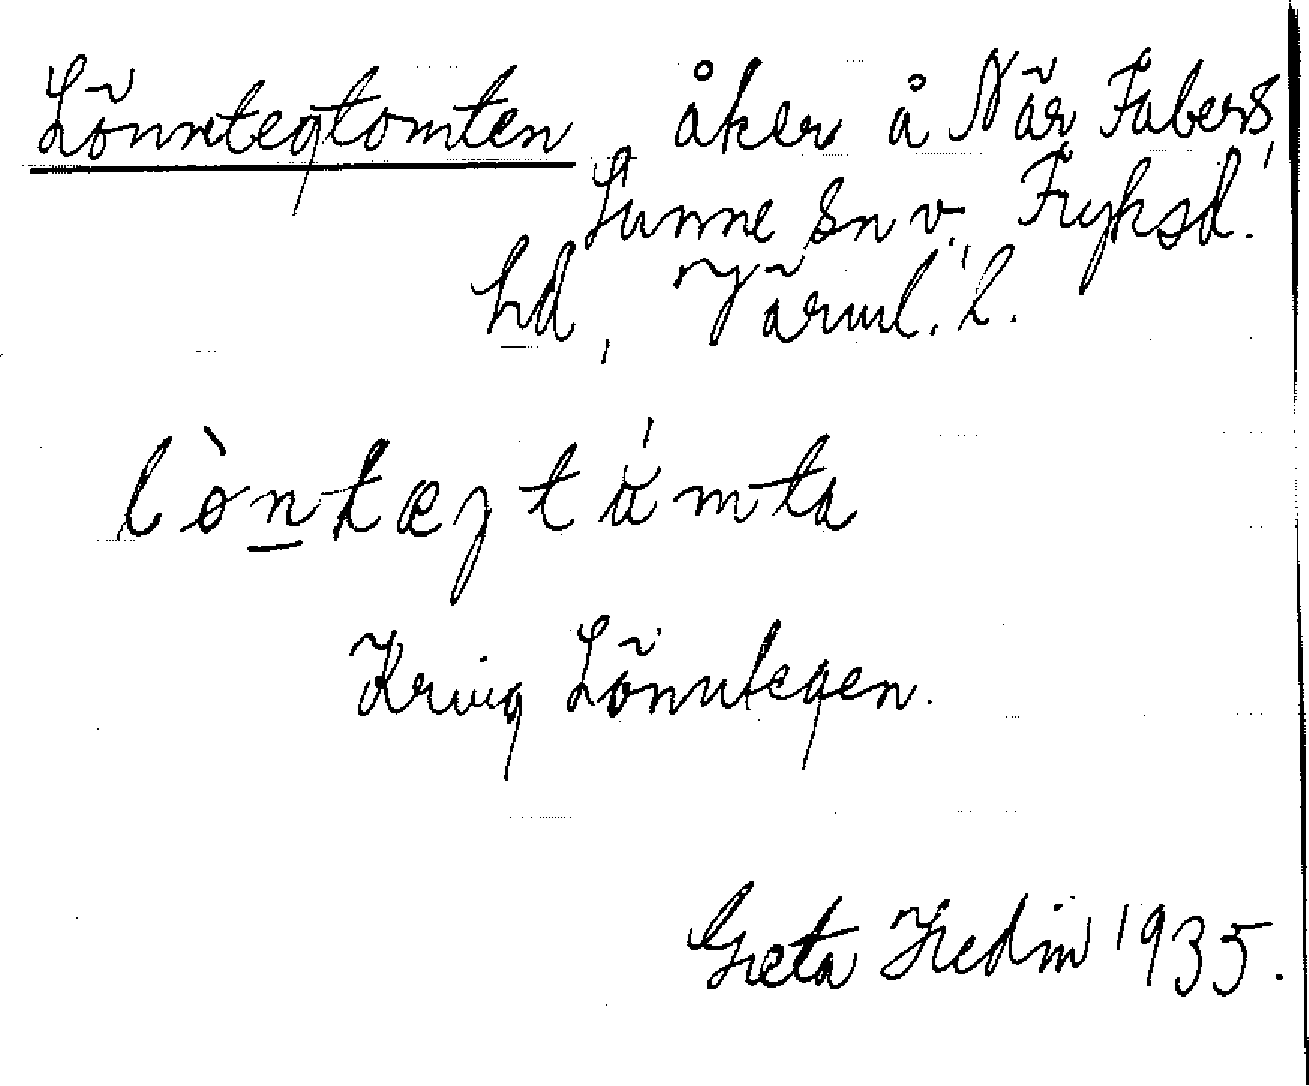 Lönntegtomten, åker å När Fabers,
Sunne sn v., Fryksd.
hd, Värml. l.
lòntægtȧ́mta
Kring Lönntegen.
Greta Hedin 1935.